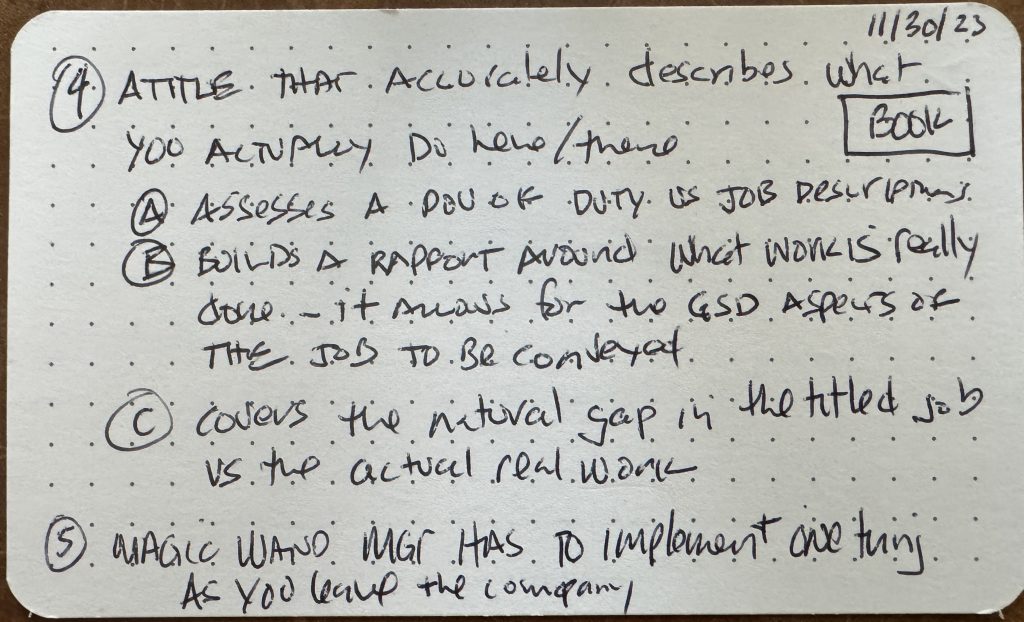 11/30/23
④ A TITLE THAT ACCURATELY describes what
BOOK
YOU ACTUALLY DO here/there
Ⓐ ASSESSES A DOU OF DUTY VS JOB DESCRIPTIONS.
Ⓑ BUILDS A RAPPORT AROUND What WORK IS really
done - it ALLOWS for the GSD ASPECTS OF
THE JOB TO BE conveyed.
Ⓒ covers the natural gap in the titled job
vs the actual real work
⑤ MAGIC WAND MGR HAS TO implement one thing
AS YOU leave the company